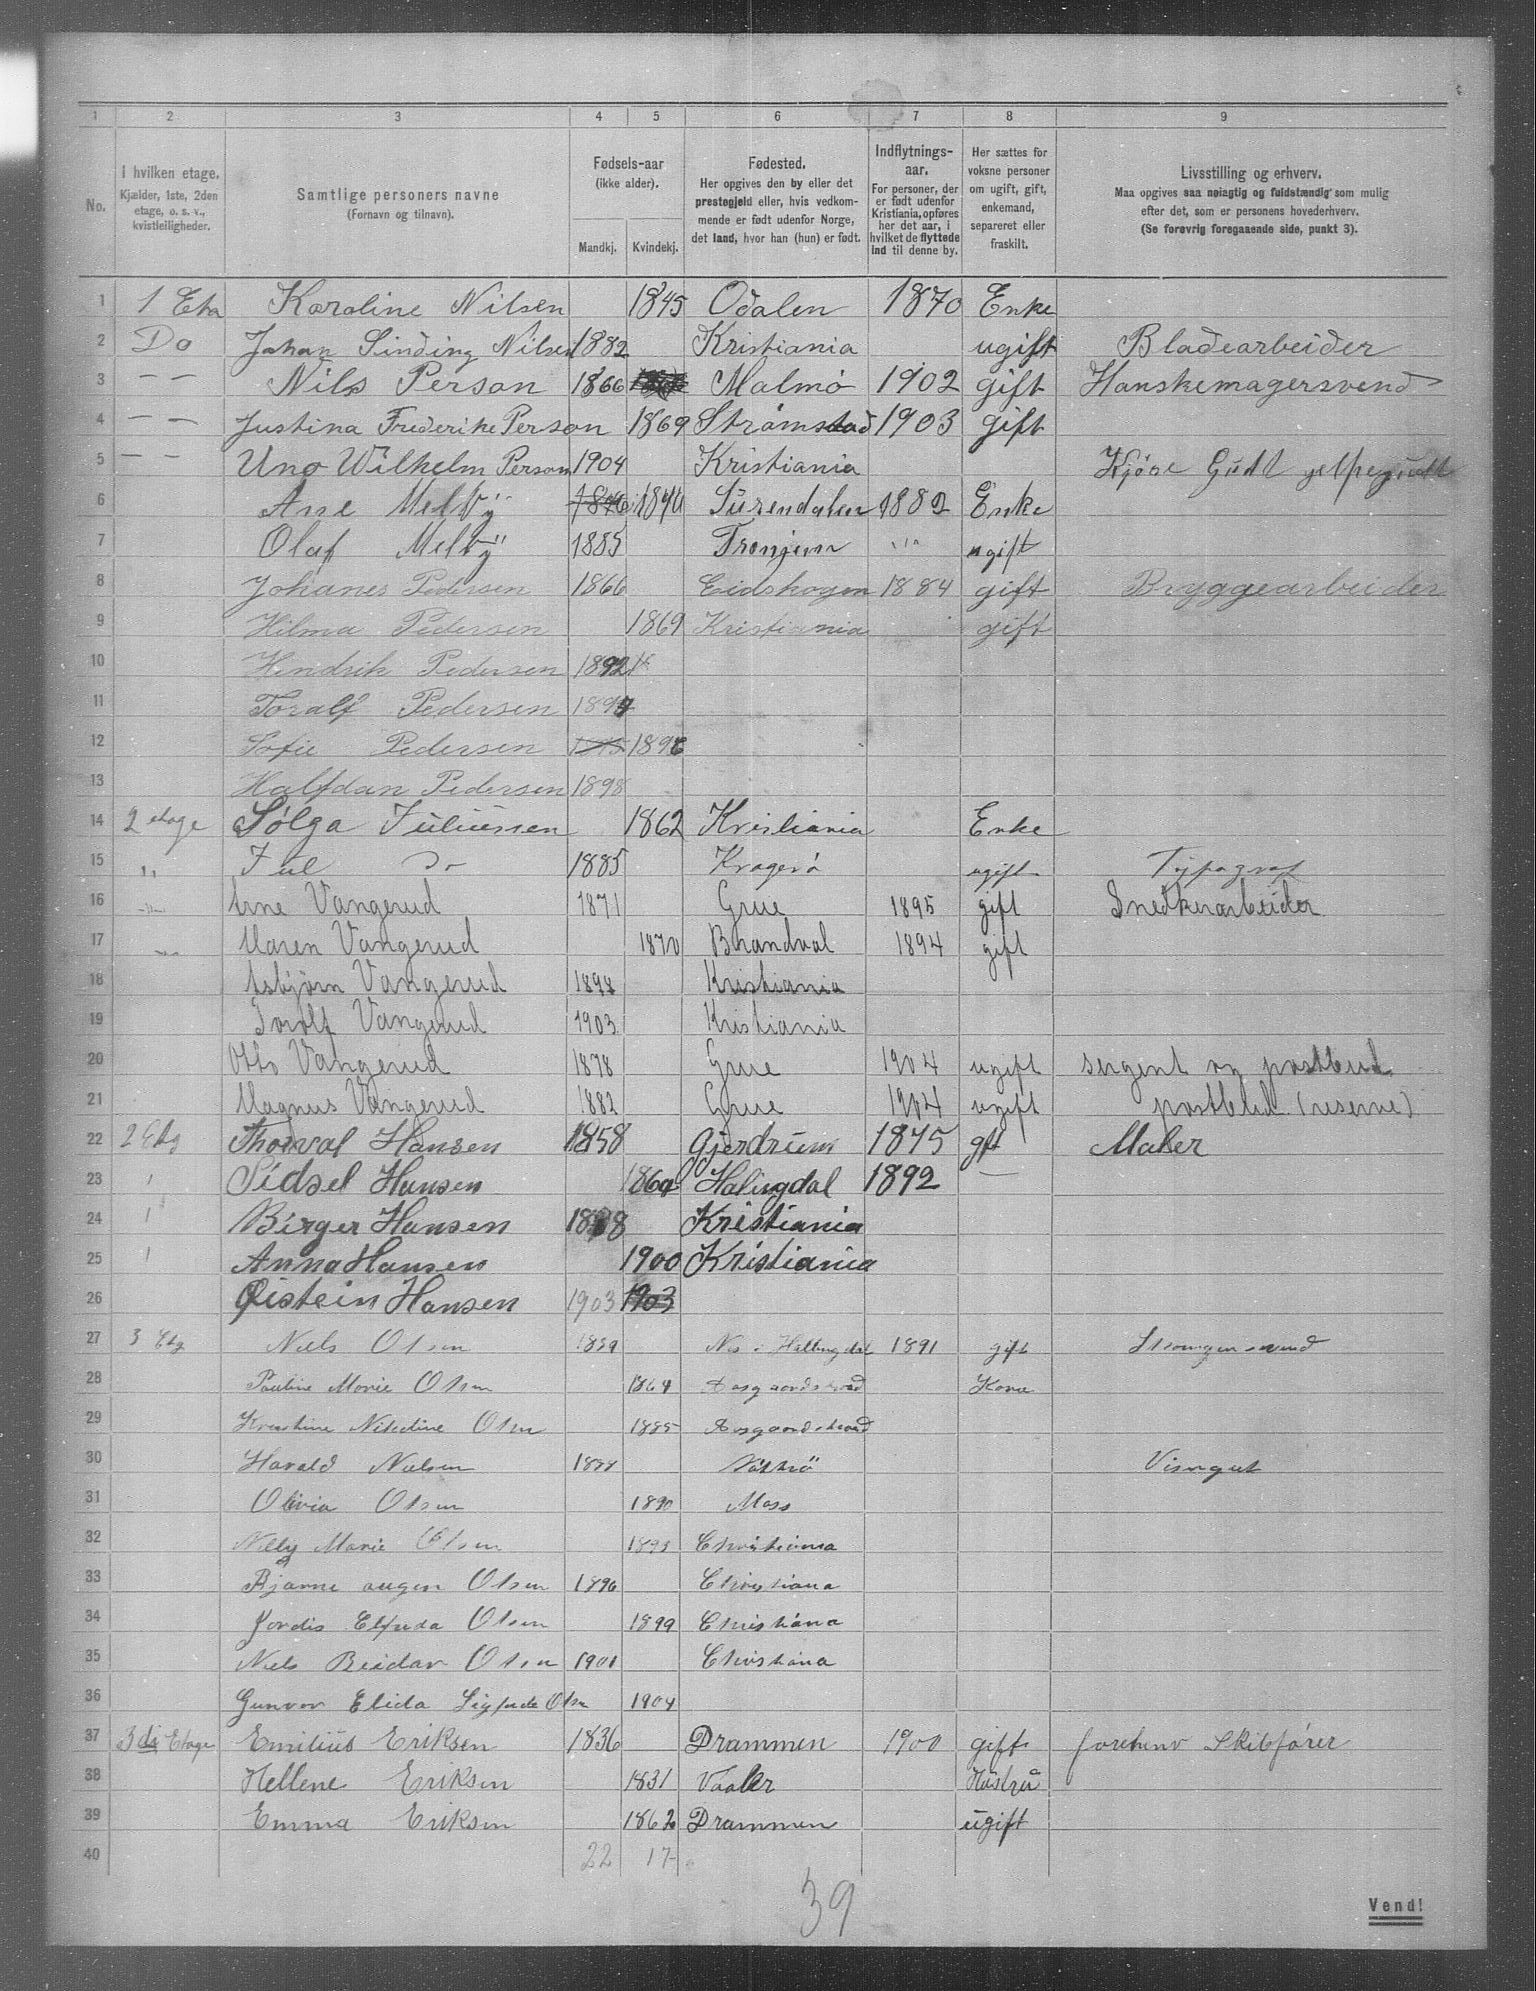 1 2 3 4 5 6 7 8 9
No. | I hvilken etage. Kjælder, 1ste, 2den etage, o. s. v., kvistleiligheder. | Samtlige personers navne (Fornavn og tilnavn). | Fødsels-aar (ikke alder). Mandkj. Kvindekj. | Fødested. Her opgives den by eller det prestegjeld eller, hvis vedkommende er født udenfor Norge, det land, hvor han (hun) er født. | Indflytnings-aar. For personer, der er født udenfor Kristiania, opføres her det aar, i hvilket de flyttede ind til denne by. | Her sættes for voksne personer om ugift, gift, enkemand, separeret eller fraskilt. | Livsstilling og erhverv. Maa opgives saa nøiagtig og fuldstændig som mulig efter det, som er personens hovederhverv. (Se forøvrig foregaaende side, punkt 3).
1 1 Eta Karoline Nilsen 1845 Odalen 1870 Enke
2 Do Johan Sinding Nilsen 1882 Kristiania ugift Bladearbeider
3 — — Nils Person 1866 Malmö 1902 gift Hanskemagersvend
4 — — Justina Frederike Person 1869 Strömstad 1903 gift
5 — — Uno Wilhelm Person 1904 Kristiania
6 Ane Melby 1840 Surendalen 1882 Enke
7 Olaf Melby 1885 Tronjem "" ugift
8 Johanes Pedersen 1866 Eidskogen 1884 gift Bryggearbeider
9 Hilma Pedersen 1869 Kristiania gift
10 Hendrik Pedersen 1892
11 Toralf Pedersen 1894
12 Sofie Pedersen 1896
13 Halfdan Pedersen 1898
14 2 etage Sølga Juliussen 1862 Kristiania Enke
15 " Jul Do 1885 Kragerö ugift Typograf
16 —"— Arne Vangerud 1871 Grue 1895 gift Snedkerarbeider
17 —"— Maren Vangerud 1870 Brandval 1894 gift
18 Asbjørn Vangerud 1898 Kristiania
19 Torolf Vangerud 1903 Kristiania
20 Otto Vangerud 1878 Grue 1904 ugift sergent og postbud
21 Magnus Vangerud 1882 Grue 1904 ugift postbud (reserve)
22 2 Etg Thorval Hansen 1858 Gjerdrum 1875 gft Maler
23 " Sidsel Hansen 1869 Halingdal 1892 —
24 " Birger Hansen 1898 Kristiania
25 " Anna Hansen 1900 Kristiania
26 Øistein Hansen 1903 1903
27 3 Etg Niels Olsen 1859 Nes i Hallingdal 1891 gift
28 Pauline Marie Olsen 1864 Aasgaardstrand Kona
29 Kristine Nikoline Olsen 1885 Aasgaardstrand
30 Harald Nielsen Visergut
31 Olivia Olsen 1890 Moss
32 Nelly Marie Olsen 1893 Christiania
33 Bjarne Olsen 1896 Christiana
34 Jordis Elfrida Olsen 1899 Christiana
35 Niels Olsen 1901 Christiana
36 Gunvor Elida Olsen 1904
37 3di Etage Emilius Eriksen 1836 Drammen 1900 gift forhenv Skibfører
38 Hellene Eriksen 1831 Vaaler Hüstru
39 Emma Eriksen 1862 Drammen ugift
40 22 17
39
Vend!